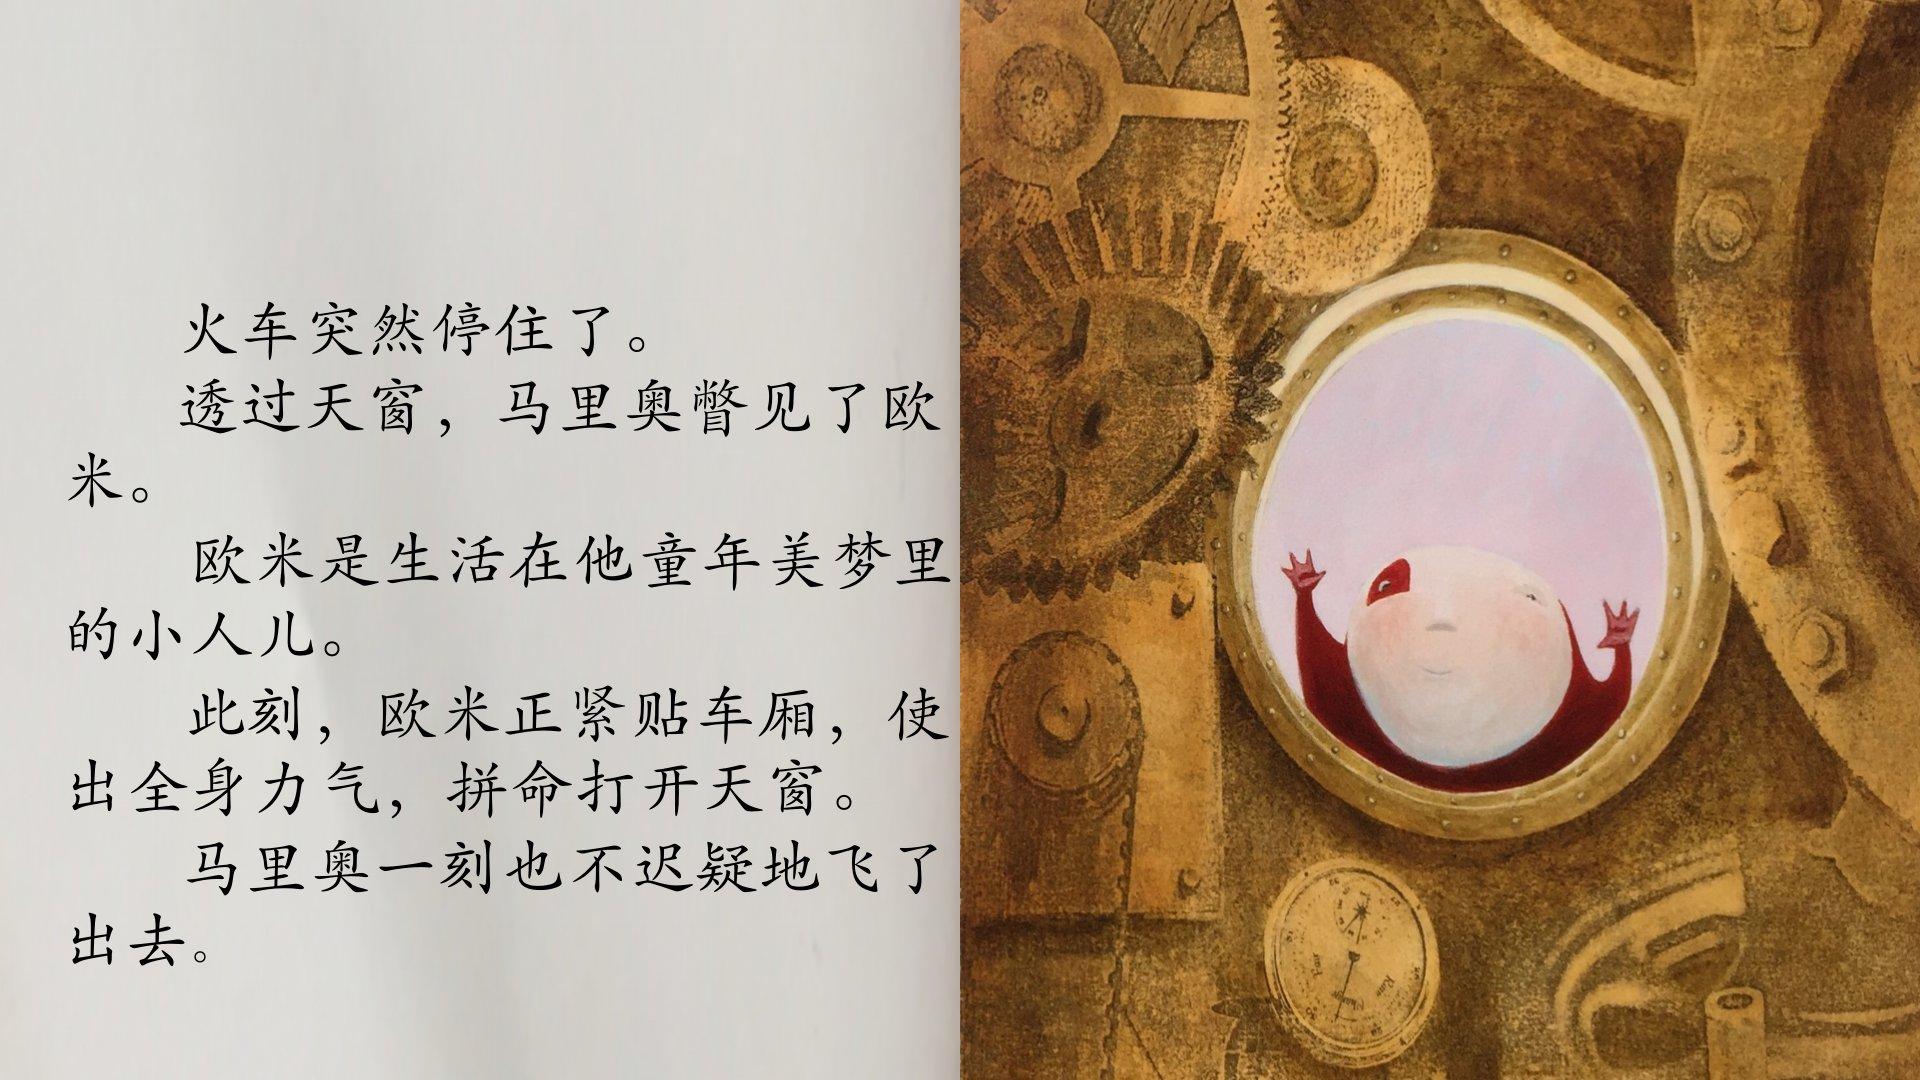 火车突然停住了。
透过天窗，马里奥瞥见了欧
米。
欧米是生活在他童年美梦里
的小人儿。
此刻，欧米正紧贴车厢，使
出全身力气，拼命打开天窗。
马里奥一刻也不迟疑地飞了
出去。